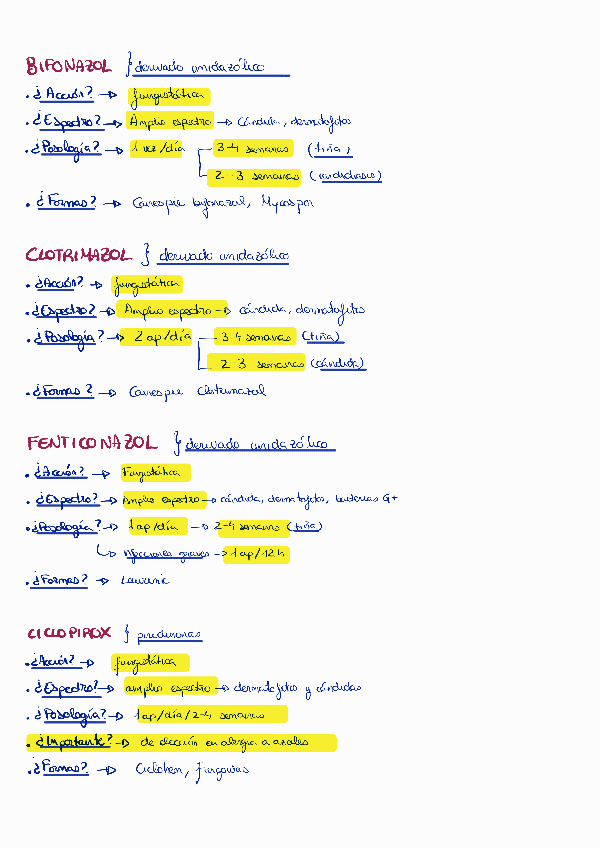 BIFONAZOL } derivado imidazólico
· ¿Acción? → fungistática
· ¿Espectro? → Amplio espectro → Cándida, dermatofitos
· ¿Posología? → 1 vez/día 3-4 semanas (tiña)
2-3 semanas (candidiasis)
· ¿Formas? → Canespie bifonazol, Mycospor
CLOTRIMAZOL } derivado imidazólico
· ¿Acción? → fungistática
· ¿Espectro? → Amplio espectro → cándida, dermatofitos
· ¿Posología? → 2 ap/día 3-4 semanas (tiña)
2-3 semanas (cándida)
· ¿Formas? → Canespie Clotrimazol
FENTICONAZOL } derivado imidazólico
· ¿Acción? → Fungistática
· ¿Espectro? → Amplio espectro → cándida, dermatofitos, bacterias G+
· ¿Posología? → 1 ap/día → 2-4 semanas (tiña)
→ infecciones graves → 1 ap/12 h
· ¿Formas? → Laurimic
CICLOPIROX } piridinonas
· ¿Acción? → fungistática
· ¿Espectro? → amplio espectro → dermatofitos y cándidas
· ¿Posología? → 1 ap/día/2-4 semanas
· ¿Importante? → de elección en alergia a azoles
· ¿Formas? → Ciclochem, fungowas